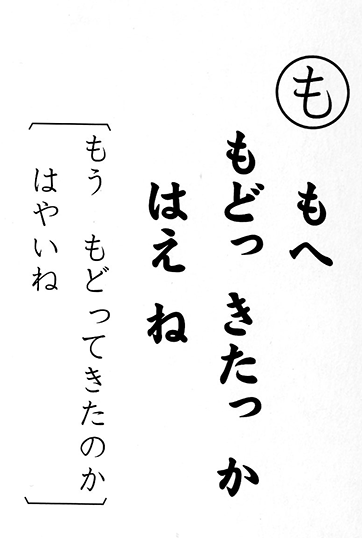 も
もへ
もどっ きたっ か
はえ ね
もう もどってきたのか
はやいね